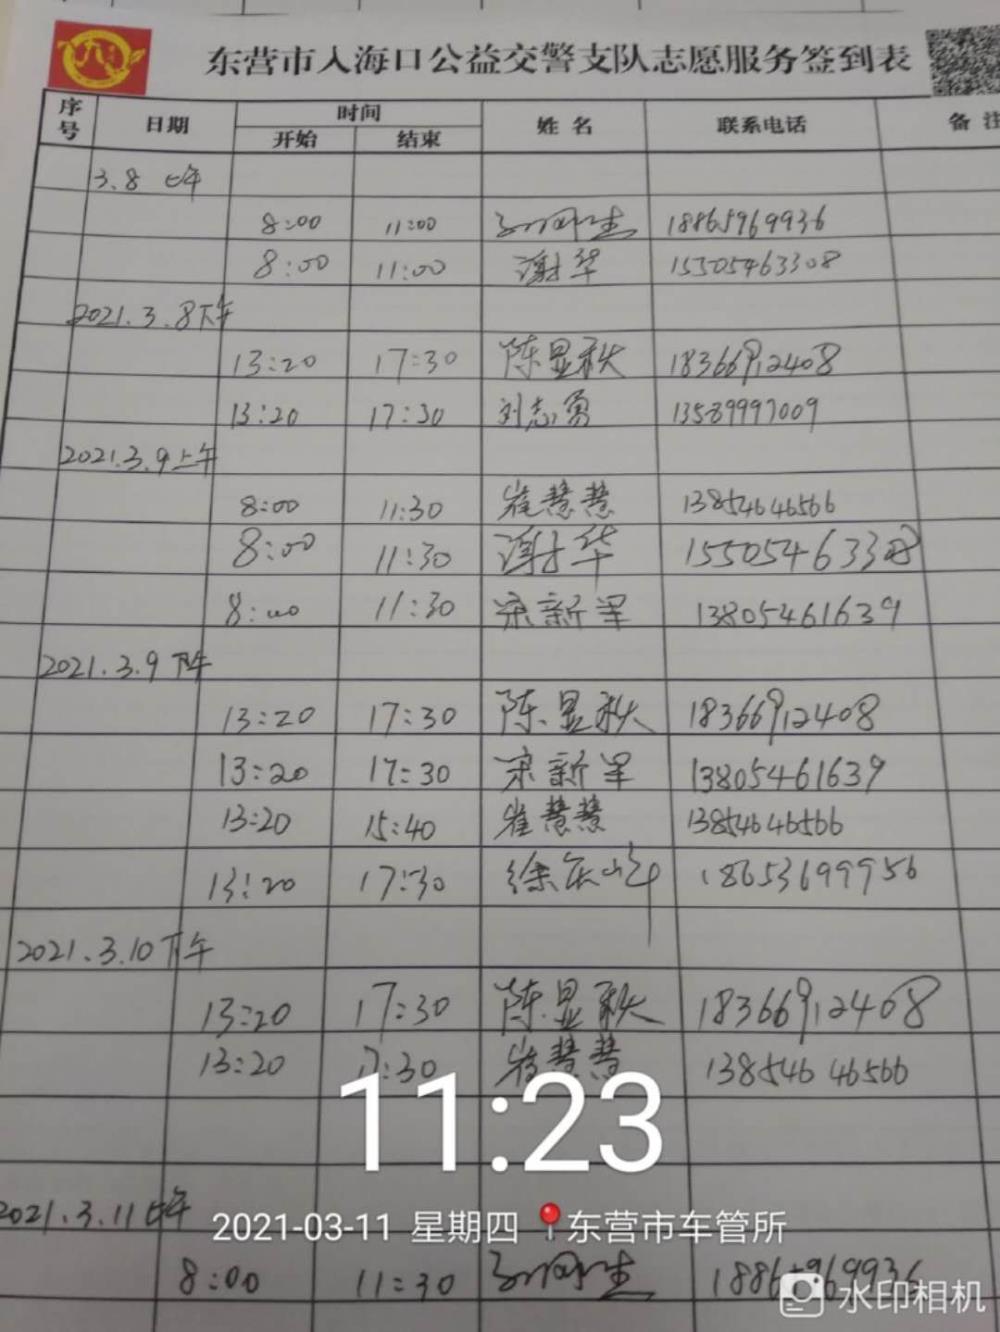 东营市入海口公益交警支队志愿服务签到表
序号 日期 时间 姓名 联系电话 备注
开始 结束
3.8 上午
8:00 11:00 18865969936
8:00 11:00 谢华 15505463308
2021.3.8下午
13:20 17:30 陈显秋 18366912408
13:20 17:30 刘志勇 13589997009
2021.3.9上午
8:00 11:30 崔慧慧 13854646566
8:00 11:30 谢华 15505463308
8:00 11:30 宋新军 13805461639
2021.3.9下午
13:20 17:30 陈显秋 18366912408
13:20 17:30 宋新军 13805461639
13:20 15:40 崔慧慧 13854646566
13:20 17:30 18653699956
2021.3.10下午
13:20 17:30 陈显秋 18366912408
13:20 17:30 崔慧慧 13854646566
11:23
2021.3.11上午
2021-03-11 星期四 东营市车管所
8:00 11:30 18865969936
水印相机